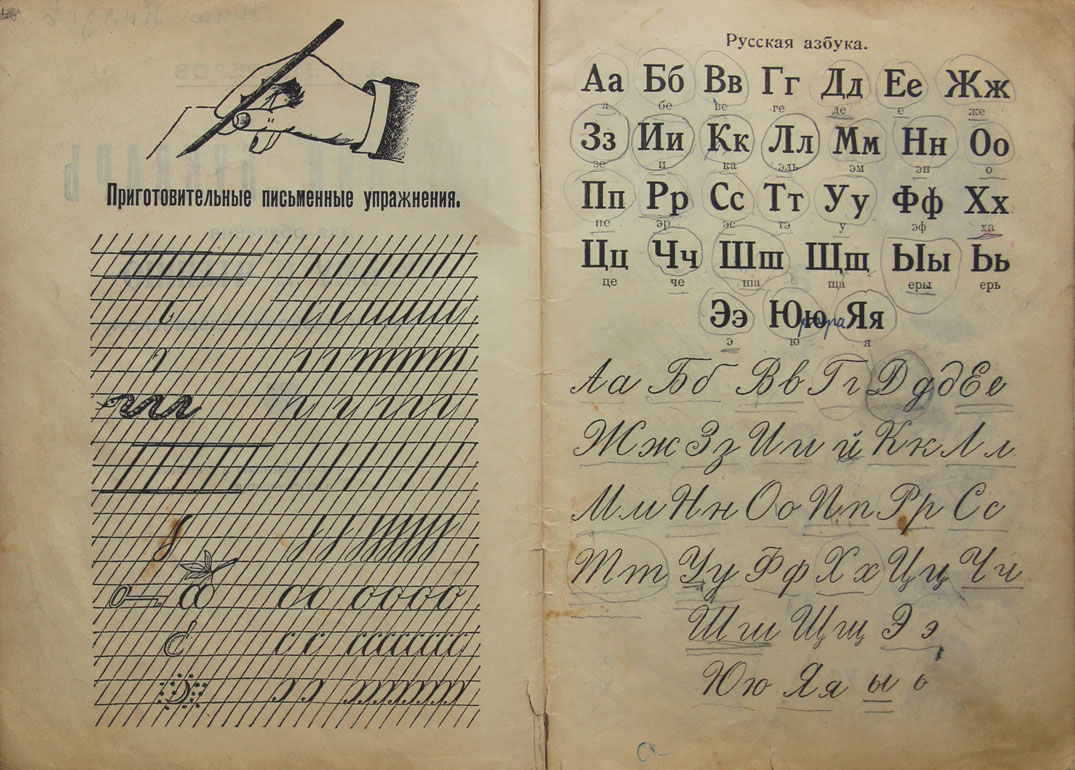 Приготовительные письменные упражнения.
Русская азбука.
Аа Бб Вв Гг Дд Ее Жж
а бе ве ге де е же
Зз Ии Кк Лл Мм Нн Оо
зе и ка эль эм эн о
Пп Рр Сс Тт Уу Фф Хх
пе эр эс тэ у эф ха
Цц Чч Шш Щщ Ыы Ьь
це че ша ща еры ерь
Ээ Юю Яя
э ю я
Аа Бб Вв Гг Д д д Ее
Жж Зз Ии й Кк Лл
Мм Нн Оо Пп Рр Сс
Тт Уу Фф Хх Цц Чч
Шш Щщ Ээ
Юю Яя ы ь